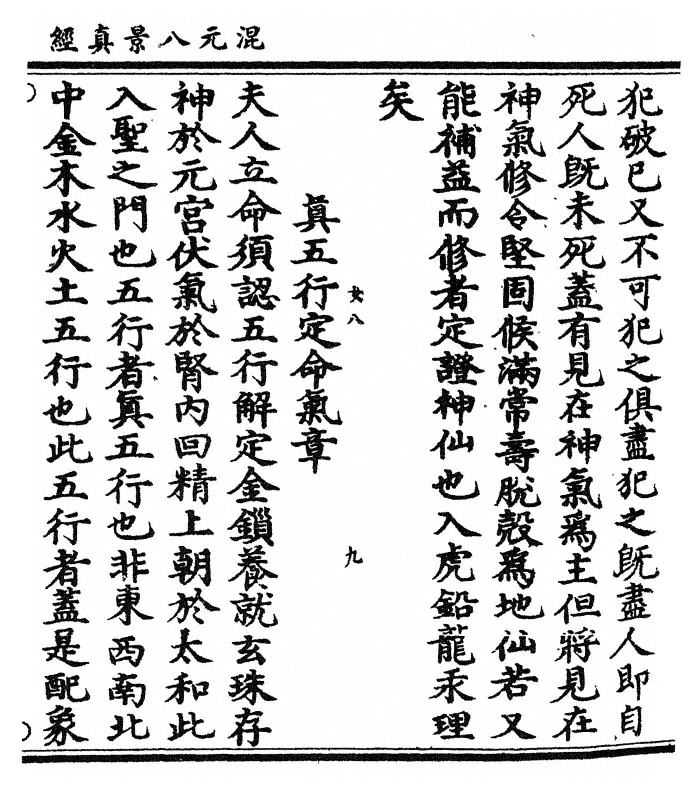 混元八景真經
犯破已又不可犯之俱盡犯之既盡人即自
死人既未死蓋有見在神氣爲主但將見在
神氣修令堅固候滿常壽脫殼爲地仙若又
能補益而修者定證神仙也入虎鉛龍汞理
矣
女八
九
眞五行定命氣章
夫人立命須認五行解定金鎖養就玄珠存
神於元宮伏氣於腎內回精上朝於太和此
入聖之門也五行者眞五行也非東西南北
中金木水火土五行也此五行者蓋是配象